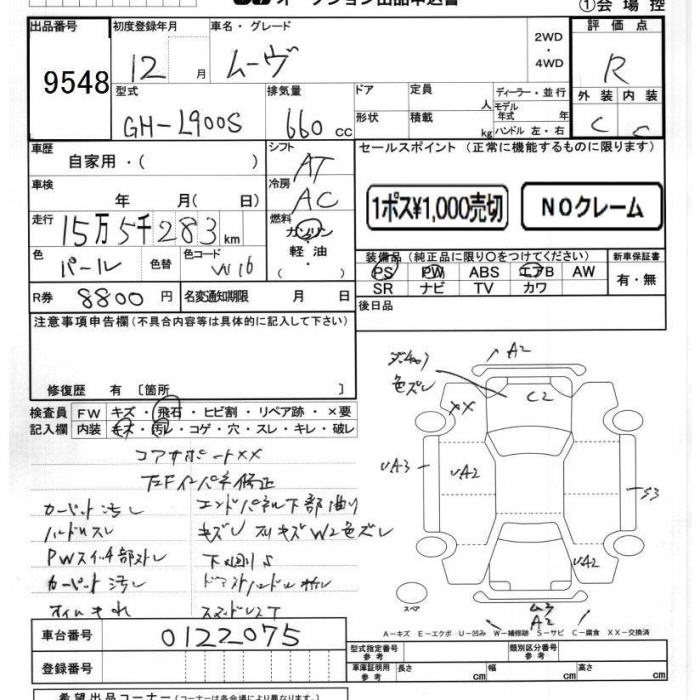 オークション出品申込書
①会場控
出品番号 初度登録年月 車名・グレード 2WD・4WD 評価点
9548 12 月 ムーヴ R
型式 排気量 ドア 定員 人 ディーラー・並行 外装 内装
GH-L900S 660 cc 形状 積載 kg モデル年式 年 ハンドル 左・右 C C
車歴 シフト セールスポイント(正常に機能するものに限ります)
自家用・( ) AT
車検 冷房 1ポス¥1,000売切 NOクレーム
年 月( 日) AC
走行 15万5千283km 燃料 ガソリン
軽油
・( )
色 色替 色コード
パール W16
装備品(純正品に限り○をつけてください) 新車保証書
PS PW ABS エアB AW 有・無
SR ナビ TV カワ
R券 8800円 名変通知期限 月 日 後日品
注意事項申告欄(不具合内容等は具体的に記入して下さい)
修復歴 有 [箇所 ]
検査員 FW キズ・飛石・ヒビ割・リペア跡・×要
記入欄 内装 キズ・汚レ・コゲ・穴・スレ・キレ・破レ
コアサポートXX
カーペット汚レ エンドパネル下部曲り
ハンドルスレ
PWスイッチ部スレ 下回リS
カーペット汚レ
A2
色ズレ
XX C2
UA3 UA2 S3
UA2
スペア
A2
A-キズ E-エクボ U-凹み W-補修跡 S-サビ C-腐食 XX-交換済
車台番号 0122075
登録番号
型式指定番号 参考 類別区分番号 参考
車庫証明用 参考 長さ cm 幅 cm 高さ cm
希望出品コーナー(コーナーは各会場により異なります)